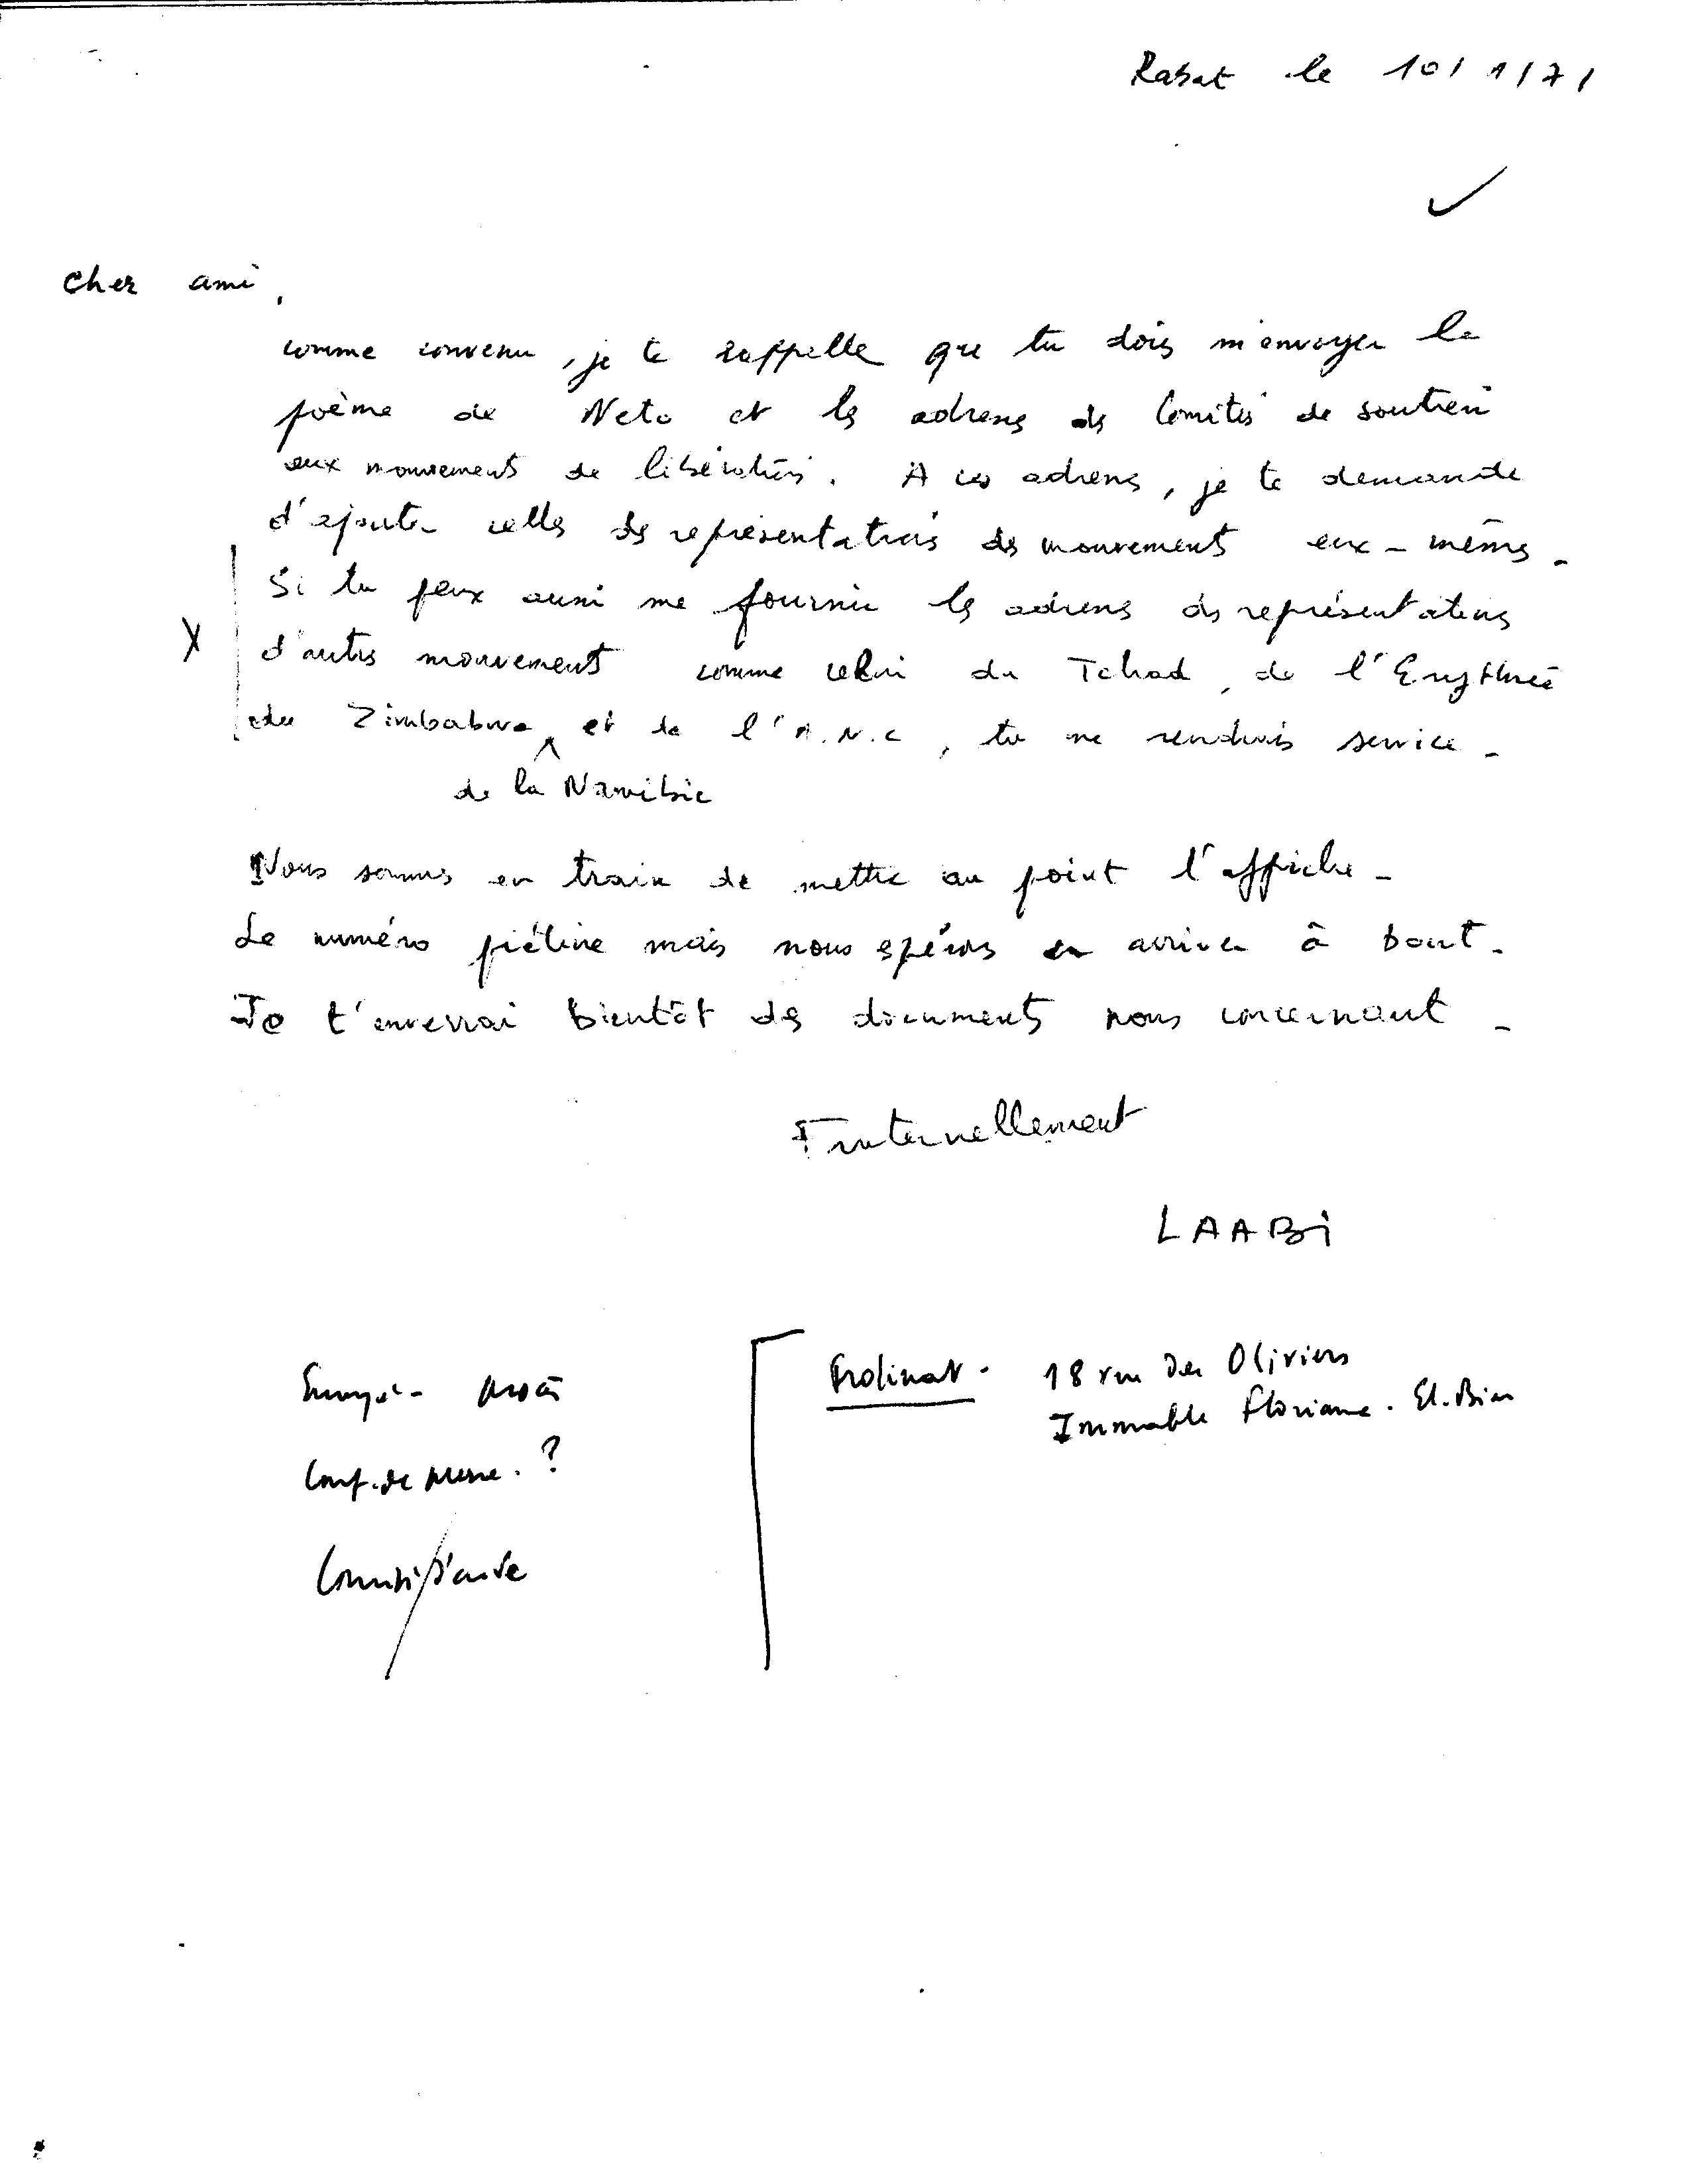 Rabat le 10/1/71
Cher ami,
comme convenu, je te rappelle que tu dois m'envoyer le
poème de Neto et les adresses des Comités de soutien
aux mouvements de libération. A ces adresses, je te demande
d'ajouter celles des représentations des mouvements eux-mêmes-
Si tu peux aussi me fournir les adresses des représentations
X d'autres mouvements comme celui du Tchad, de l'Erythrée
du Zimbabwe et de l'A.N.C, tu me rendrais service-
de la Namibie
Nous sommes en train de mettre au point l'affiche-
Le numéro piétine mais nous espérons en arriver à bout-
Je t'enverrai bientôt des documents nous concernant-
Fraternellement
LAABi
18 rue des Oliviers
Immeuble Floriane. El.Biar
Conf. de presse. ?